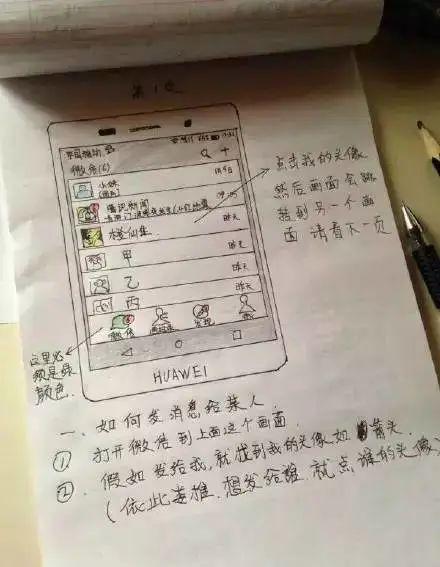 第1页
中国移动
微信(6)
1月9日
腾讯新闻
昨天
楼仙集
昨天
甲
昨天
乙
昨天
丙
微信
通讯录
发现
我
HUAWEI
点击我的头像
然后画面会跳
转到另一个画
面 请看下一页
这里必
须是绿
颜色.
一、如何发消息给某人.
① 打开微信到上面这个画面.
②. 假如发给我,就找到我的头像如 箭头.
(依此类推.想发给谁.就点谁的头像.